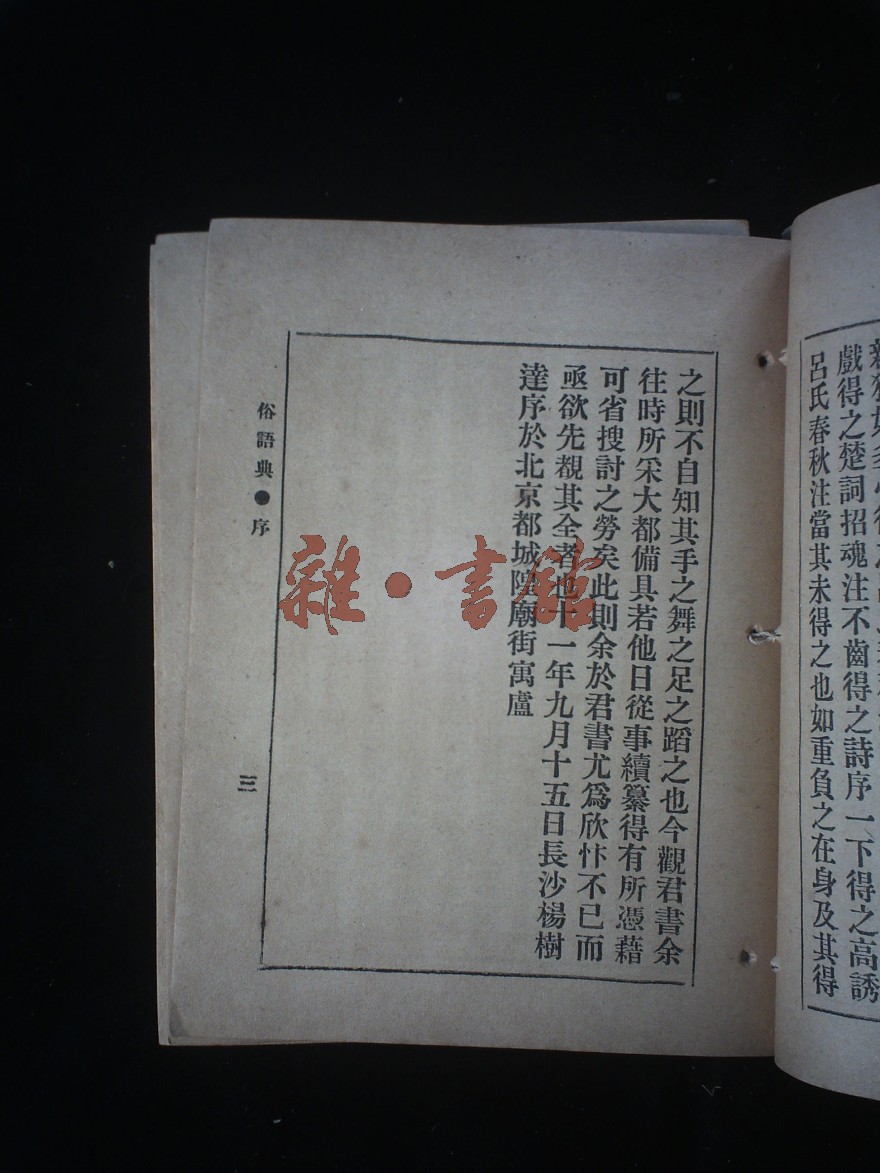 新
戲得之楚詞招魂注不齒得之詩序一下得之高誘
呂氏春秋注當其未得之也如重負之在身及其得
之則不自知其手之舞之足之蹈之也今觀君書余
往時所采大都備具若他日從事續纂得有所憑藉
可省搜討之勞矣此則余於君書尤爲欣忭不已而
亟欲先覩其全者也十一年九月十五日長沙楊樹
達序於北京都城隍廟街寓廬
俗語典●序
三
雜·書館